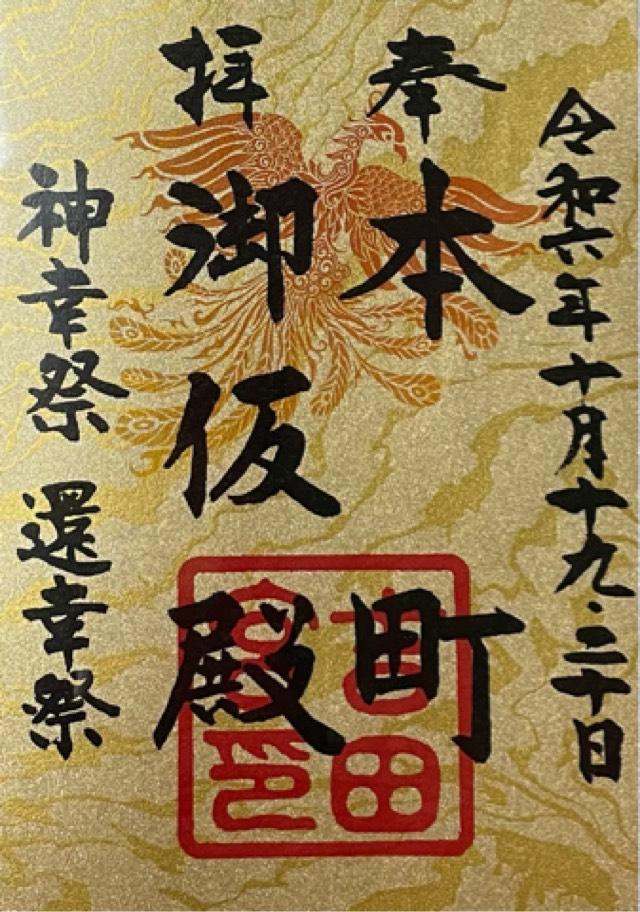 令和六年十月十九・二十日
奉拝
本町
御仮殿
神幸祭 還幸祭
吉田宮印